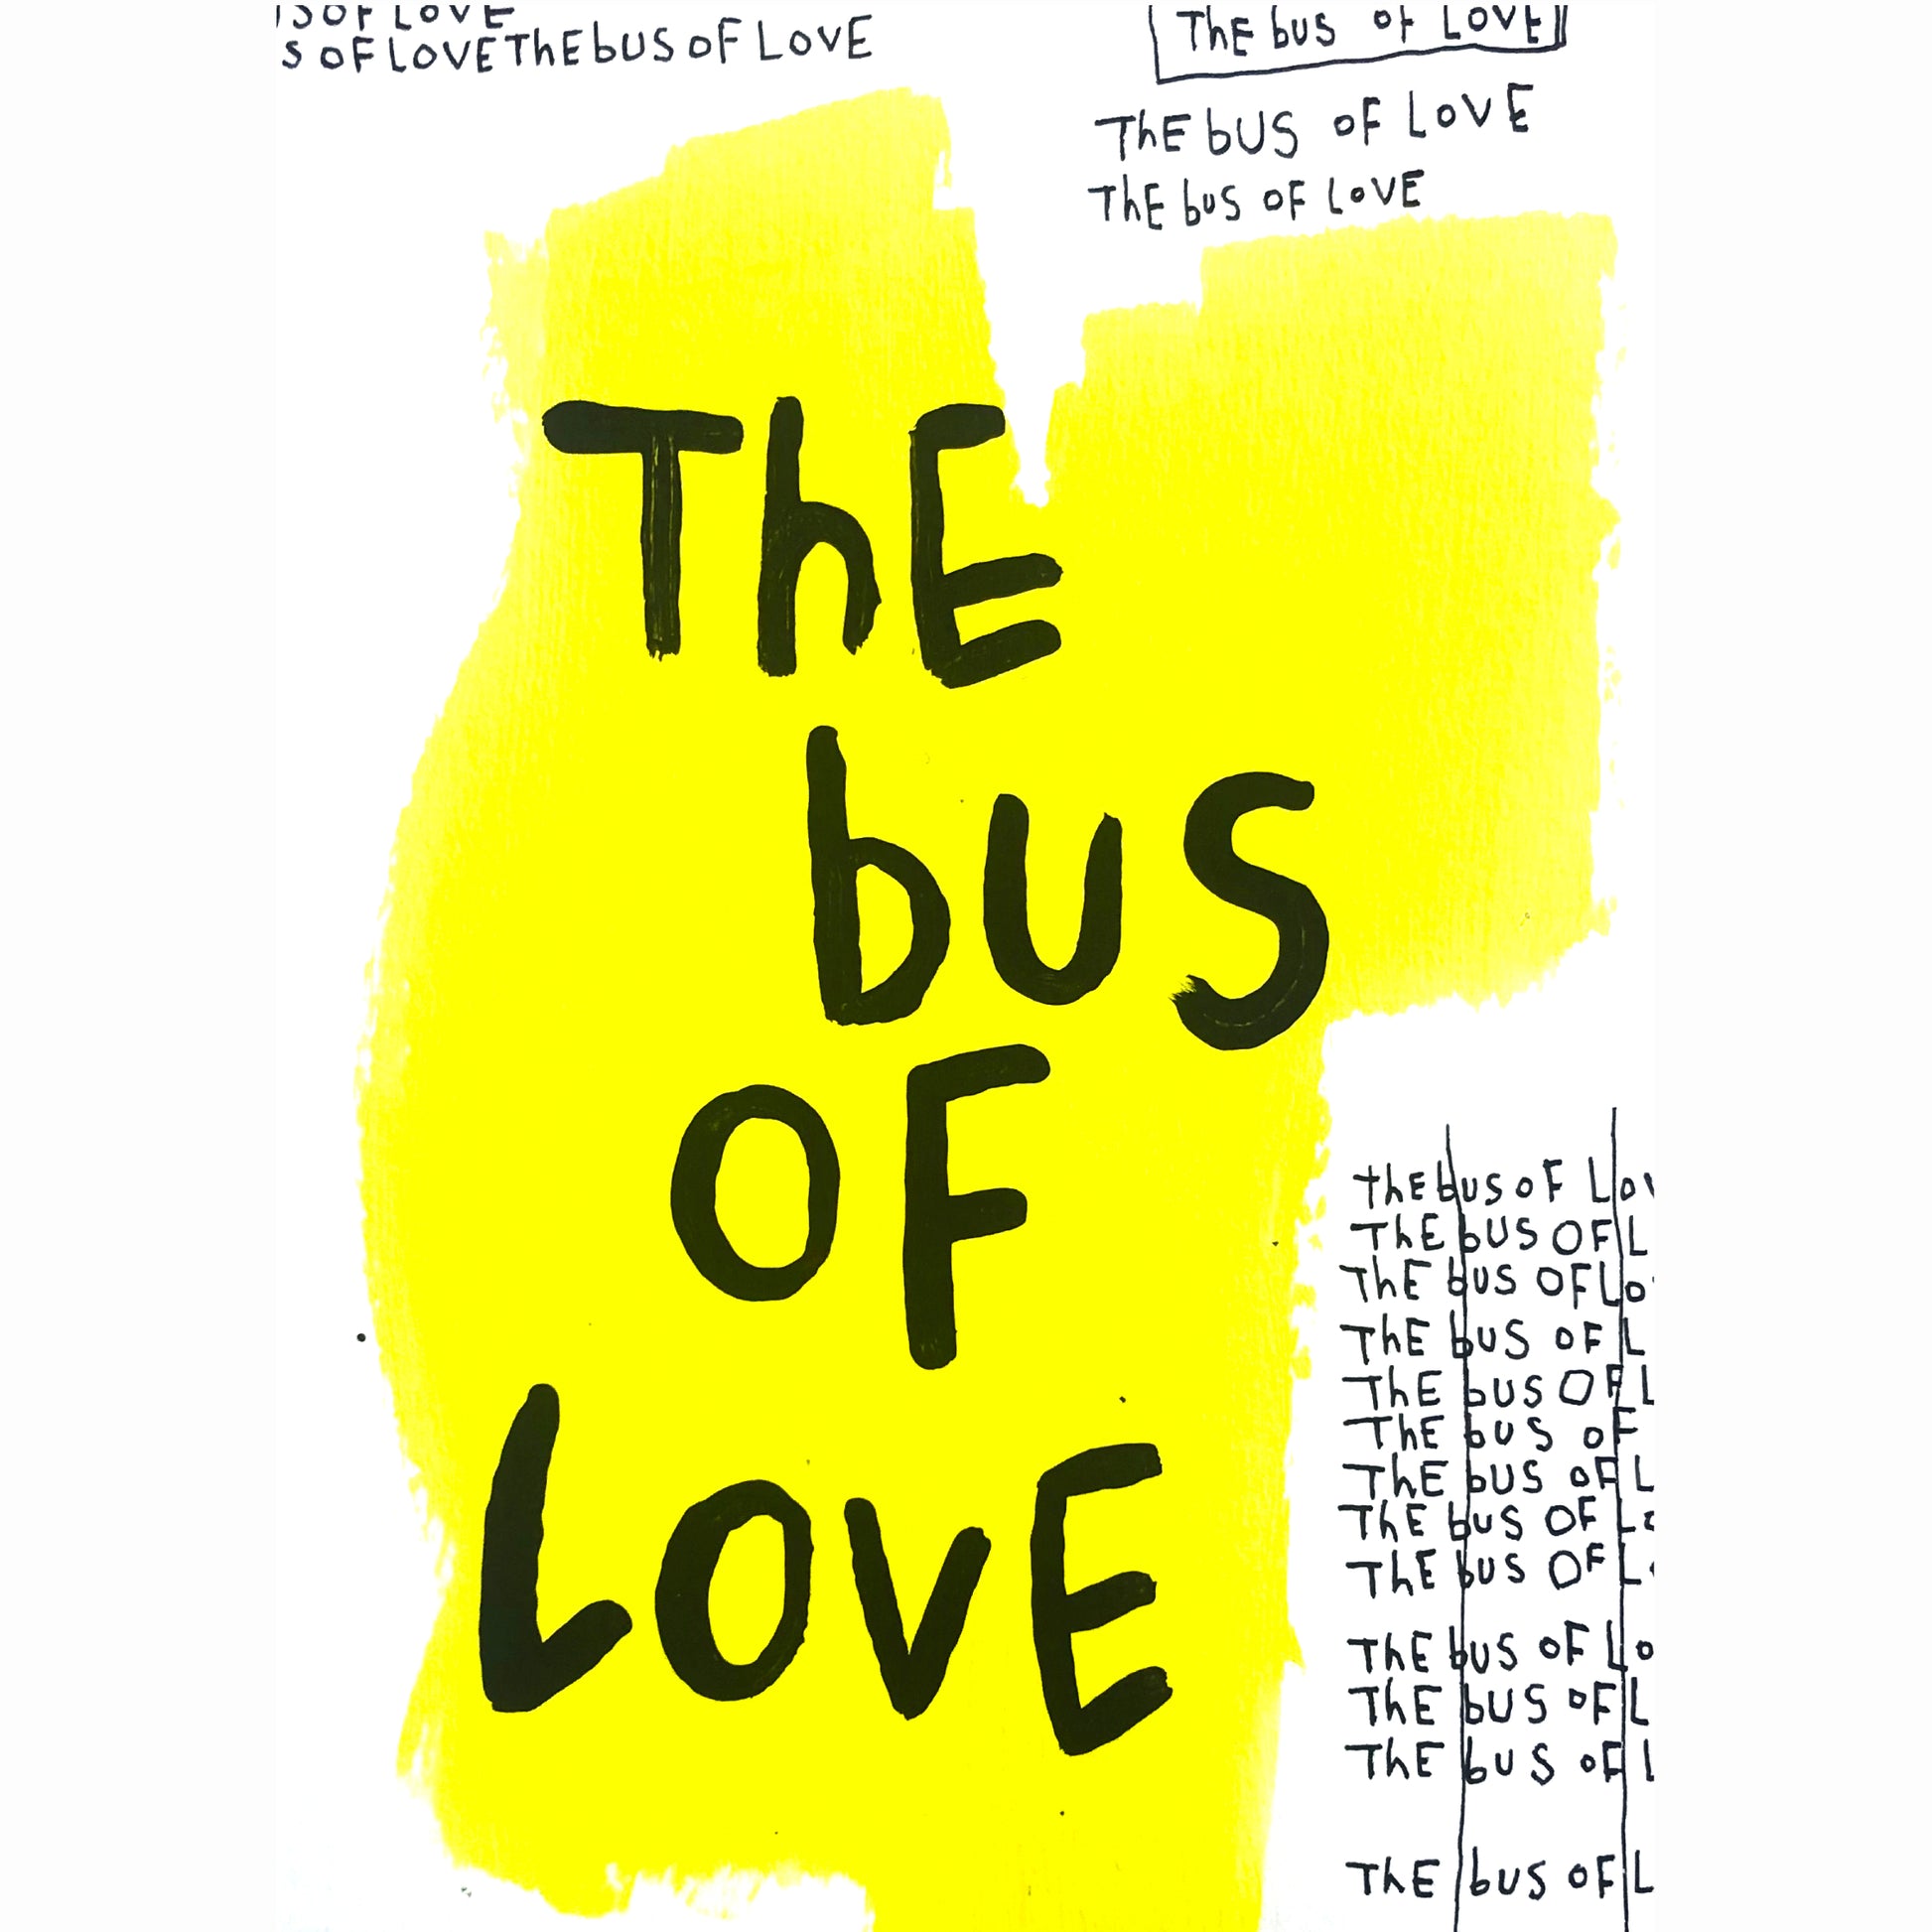 S OF LOVE
S OF LOVE ThE bUS OF LOVE
ThE bus oF LOVE
ThE bUS OF LOVE
ThE bus OF LOVE
ThE
bus
OF
LOVE
thE bus oF Lov
ThE bUS OF L
ThE bUS OF Lo
ThE bUS OF L
ThE bUS OF L
ThE bUS oF
ThE bUS OF L
ThE bUS OF Lo
ThE bUS OF Lo
ThE bUS oF Lo
ThE bUS oF L
ThE bUS oF L
ThE bUS OF L